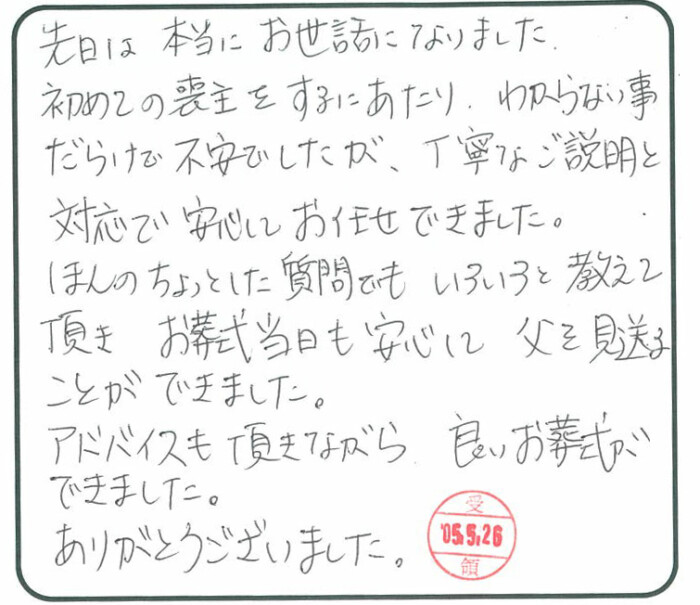 先日は 本当に お世話になりました.
初めての喪主をするにあたり、わからない事
だらけで 不安でしたが、丁寧なご説明と
対応で 安心して お任せできました。
ほんのちょっとした 質問でも いろいろと 教えて
頂き お葬式当日も 安心して 父を見送る
ことが できました。
アドバイスも 頂きながら 良いお葬式が
できました。
ありがとうございました。
受
'05.5.26
領